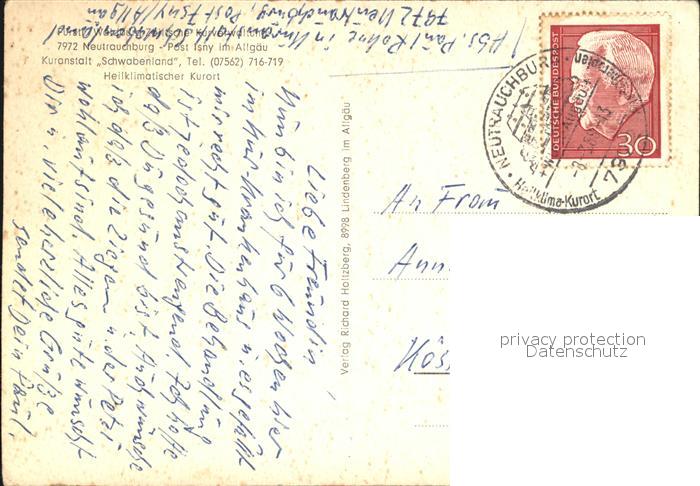 Abs. Paul Kohne in
7972 Neutrauchburg, Post Isny/Allgäu
7972 Neutrauchburg · Post Isny im Allgäu
Kuranstalt „Schwabenland", Tel. (07562) 716-719
Heilklimatischer Kurort
Liebe Freundin,
Nun bin ich für 6 Wochen hier
im Kur-Krankenhaus u. es gefällt
mir recht gut. Die Behandlung
ist jedoch anstrengend. Ich hoffe
daß Du gesund bist. Auch wünsche
ich daß die Ziegen u. der Petzi
wohlauf sind. Alles gute wünscht
Dir u. viele herzliche Grüße
sendet Dein Paul.
Verlag Richard Holtzberg, 8998 Lindenberg im Allgäu
DEUTSCHE BUNDESPOST
30
NEUTRAUCHBURG
Heilklima-Kurort
An Frau
Ann
Kös
privacy protection
Datenschutz